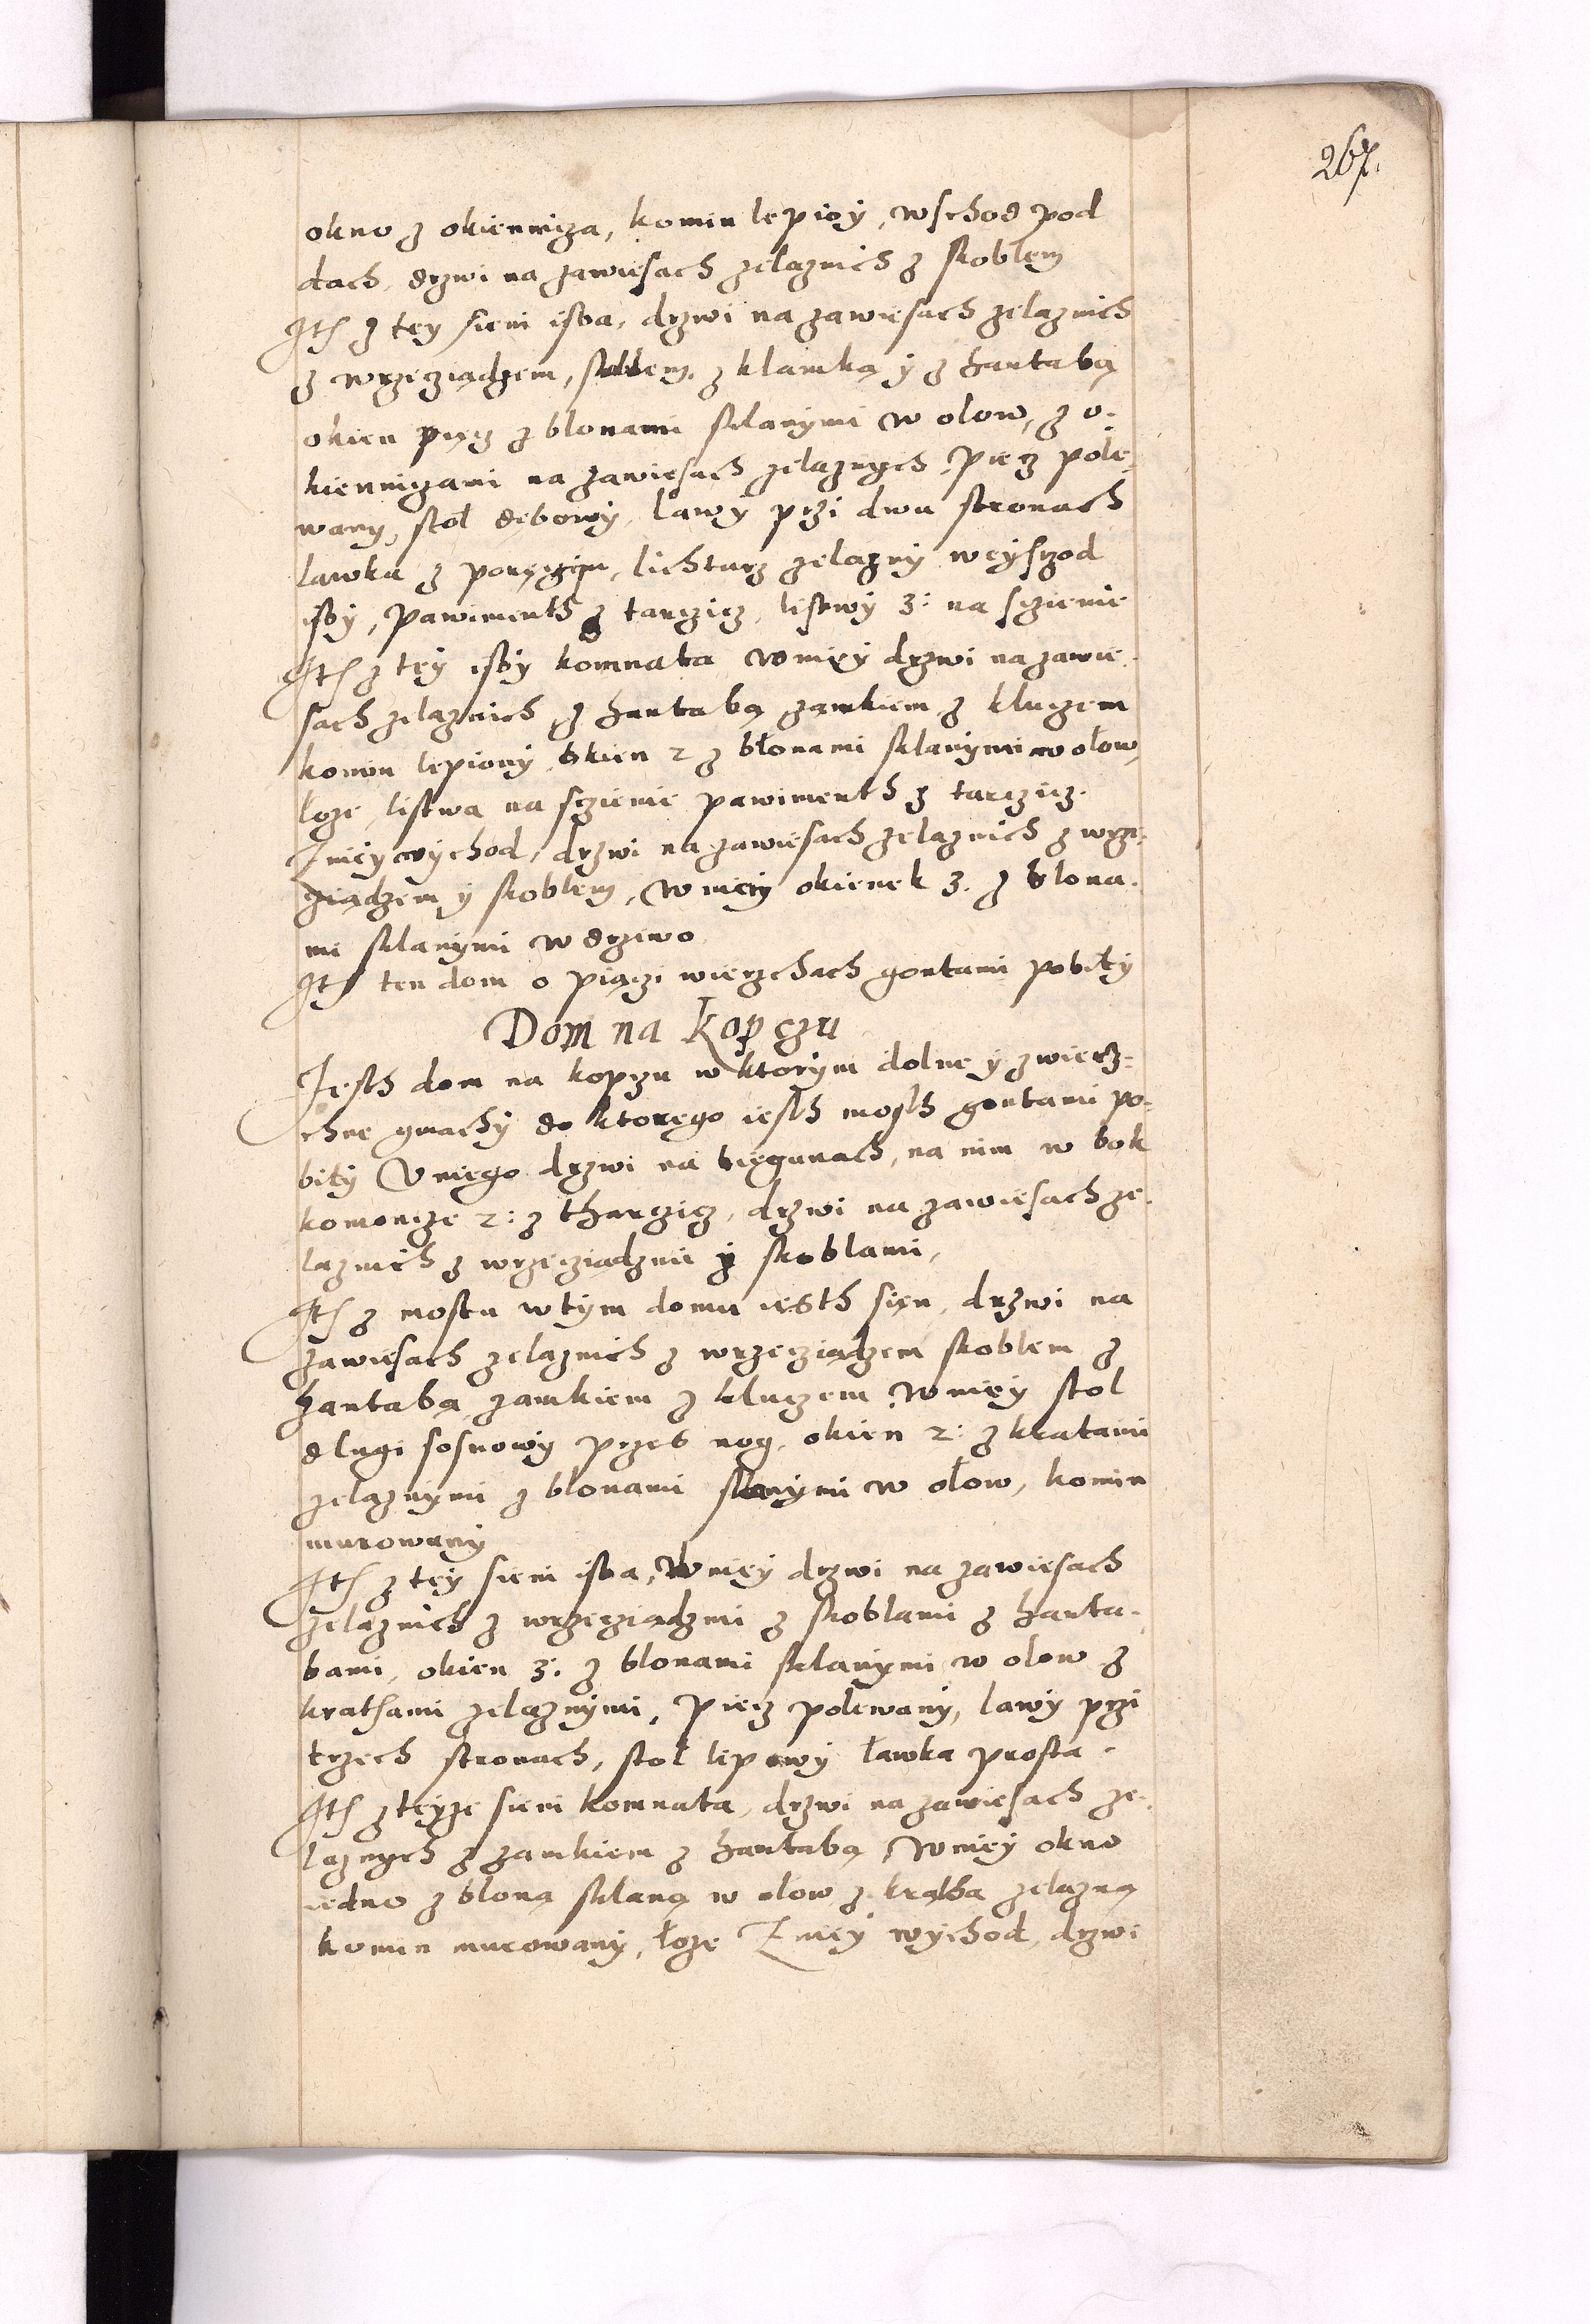 267.
okno z okiennizą, komin lepioy, wschod pod
dach, drzwi na zawiesach zelaznich z skoblem
Itħ z tey sieni isba, drzwi na zawiesach zelaznich
z wrzeciądzem, skoblem, z klamką y z hantabą
okien pięcz z blonami sklanymi w olow, z o-
kiennizami na zawiesach zelaznych, Piecz pole-
wany, stoł dębowy, lawy przi dwu stronach
lawka z poręczim, lichtarz zelazny weyszrod
isby, Pawimenth z tarczicz, listwy 3: na sczienie
Itħ z tey isby komnata w niey drzwi na zawie-
sach zelaznich, z hantabą zamkiem z kluczem
komin lepiony okien 2 z błonami sklanymi w ołow,
loze, listwa na sczienie pawimenth z tarczicz.
Z niey wychod, drzwi na zawiesach zelaznich z wrze-
ciądzem y skoblem, w nieiy okienek 3. z blona-
mi sklanymi w drzewo
Itħ ten dom o piączi wierzchach gontami pobity
Dom na kopczu
Jesth dom na kopczu w ktorym dolne y zwierz-
chne gmachy do ktorego iesth mosth gontami po-
bity U niego drzwi na biegunach, na nim w bok
komorcze 2: z tharczicz, drzwi na zawiesach ze-
laznich z wrzecziądzmi y skoblami,
Itħ z mostu w tym domu iesth sień, drzwi na
zawiesach zelaznich z wrzecziądzem skoblem z
hantabą zamkiem z kluczem, w niey stol
dlugi sosnowy przes nog, okien 2: z kratami
zelaznymi z błonami slanymi w ołow, komin
murowany
Itħ z tey sieni isba, W niey drzwi na zawiesach
zelaznich z wrzecziądzmi z skoblami z hanta-
bami, okien 3: z blonami sklanymi w olow z
krathami zelaznymi, Piecz polewany, lawy przi
trzech stronach, stoł lipowy ławka prosta.
Itħ z teyze sieni komnata, drzwi na zawiesach ze-
laznych z zamkiem z hantabą, W niey okno
iedno z bloną sklaną w olow z krathą zelazną
komin murowany, łoze Z niey wychod, drzwi